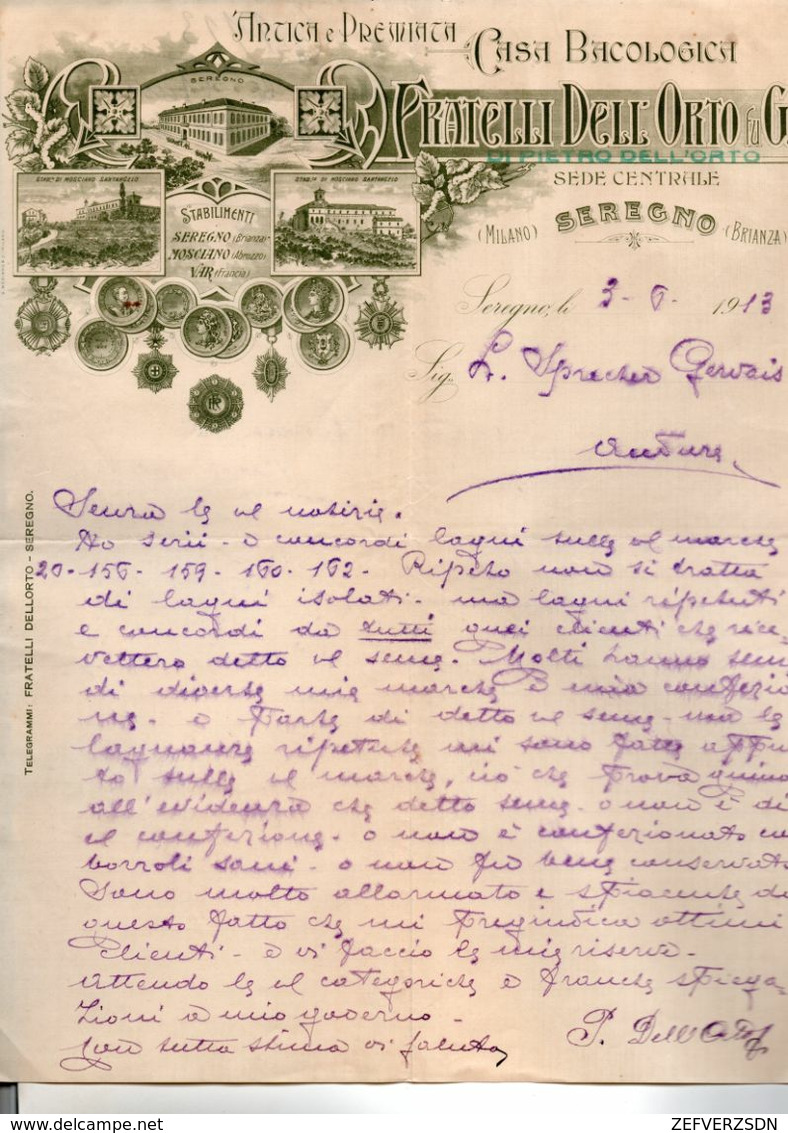 Antica e Premiata
Casa Bacologica
Fratelli Dell'Orto fu G.
DI PIETRO DELL'ORTO
SEDE CENTRALE
(MILANO) SEREGNO (BRIANZA)
SEREGNO
STAB.to DI MOSCIANO SANTANGELO
STAB.to DI MOSCIANO SANTANGELO
STABILIMENTI
SEREGNO (Brianza)
MOSCIANO (Abruzzo)
VAR (Francia)
Seregno, li 3-6-1913
Sig. Sprecher Gervais
TELEGRAMMI: FRATELLI DELLORTO - SEREGNO.
Senza le vs notizie.
Ho serii e concordi lagni sulle vs marche
156 - 159 - 160 - 162 - Ripeto non si tratta
di lagni isolati - ma lagni ripetuti
e concordi da tutti quei clienti che rice-
vettero detto vs seme. Molti hanno seme
di diverse mie marche e mia confezio
ne - e parte di detto vs seme - non le
lagnanze ripetute mi sono fatte appun
to sulle vs marche, ciò che prova quindi
all'evidenza che detto seme - o non è di
vs confezione - o non è confezionato con
bozzoli sani - o non fu bene conservato
Sono molto allarmato e spiacente di
questo fatto che mi pregiudica ottimi
Clienti - e vi faccio le mie riserve -
Attendo le vs categoriche e franche spiega-
zioni a mio governo -
Con tutta stima vi saluto,
P. Dell'Orto
ZEFVERZSDN